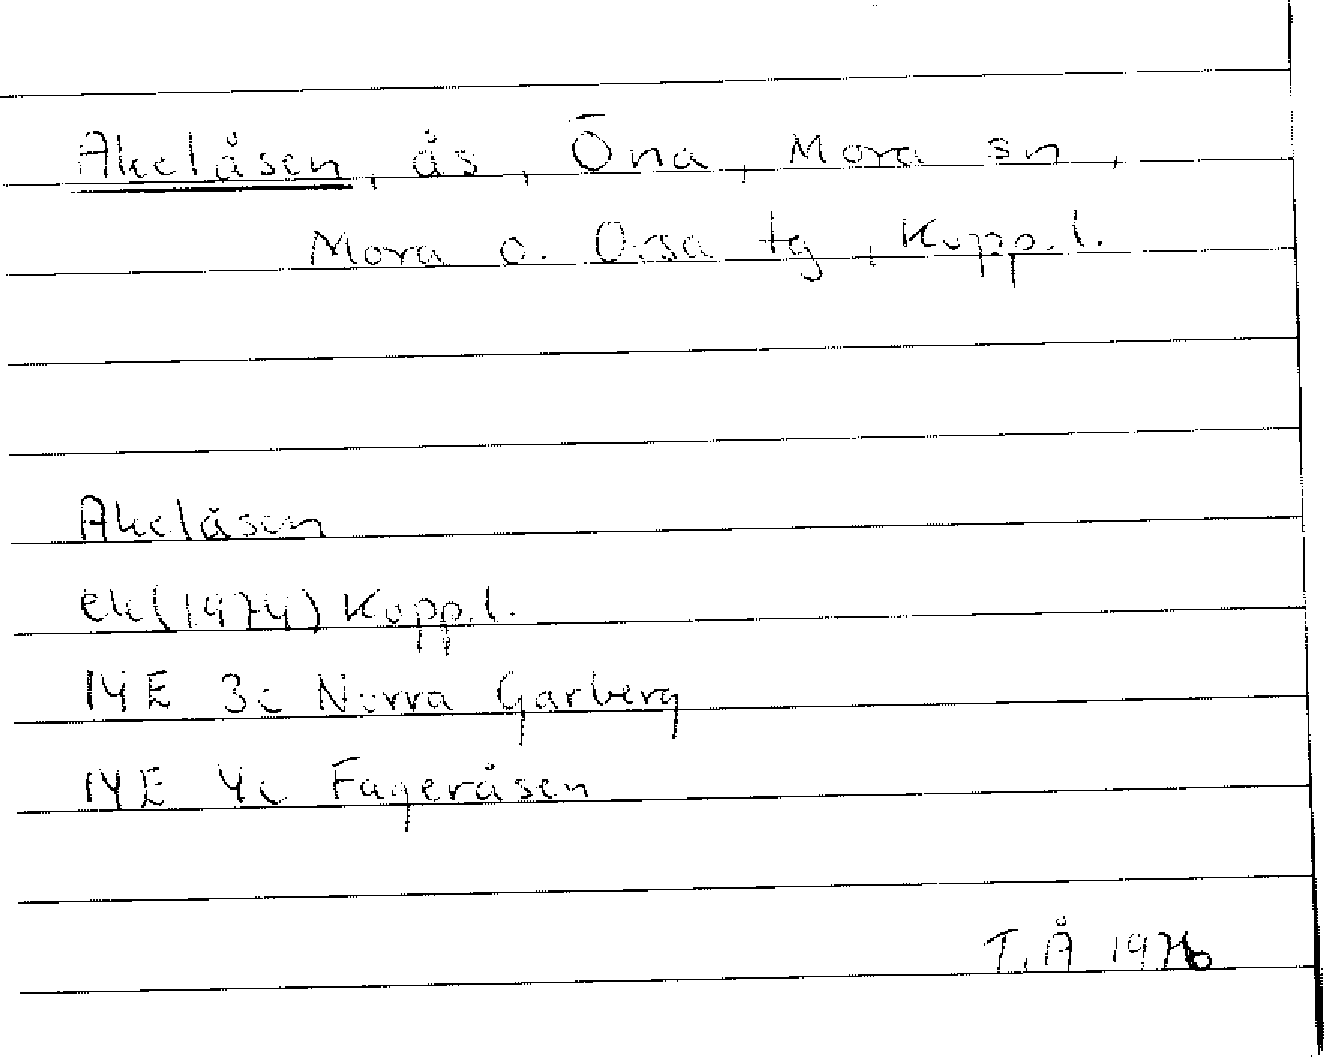 Akelåsen, ås, Öna, Mora sn,
Mora o. Orsa tg, Kopp.l.
Akelåsen
ek(1974) Kopp.l.
14E 3c Norra Garberg
14E 4c Fageråsen
T.Å 1976